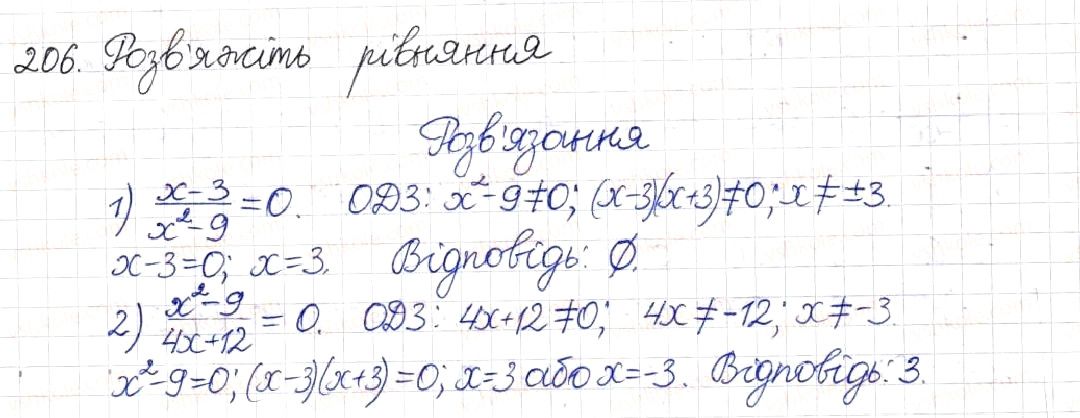 206. Розв'яжіть рівняння
Розв'язання
1) (x-3)/(x²-9) = 0. ОДЗ: x²-9≠0; (x-3)(x+3)≠0; x≠±3.
x-3=0; x=3. Відповідь: Ø.
2) (x²-9)/(4x+12) = 0. ОДЗ: 4x+12≠0; 4x≠-12; x≠-3.
x²-9=0; (x-3)(x+3)=0; x=3 або x=-3. Відповідь: 3.